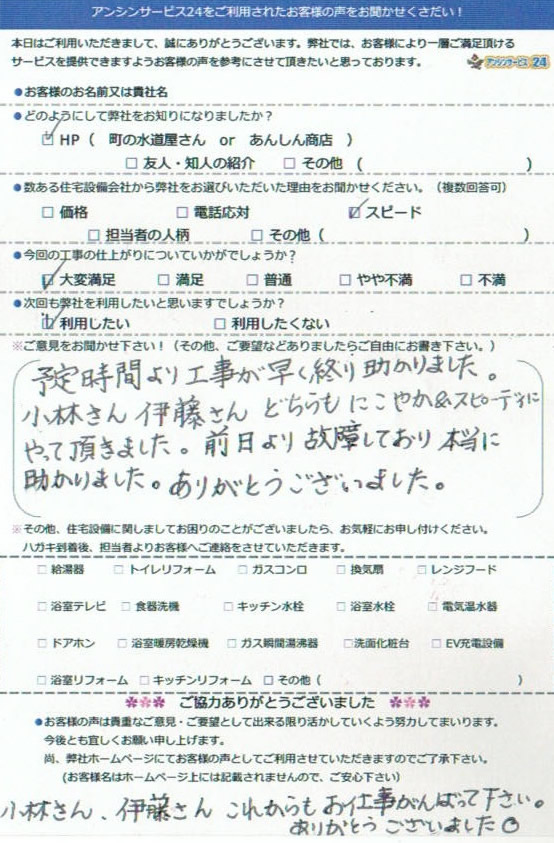 アンシンサービス24をご利用されたお客様の声をお聞かせくさだい！
本日はご利用いただきまして、誠にありがとうございます。弊社では、お客様により一層ご満足頂ける
サービスを提供できますようお客様の声を参考にさせて頂きたいと思っております。 アンシンサービス24
●お客様のお名前又は貴社名
●どのようにして弊社をお知りになりましたか？
☑HP（　町の水道屋さん　or　あんしん商店　）
□友人・知人の紹介　□その他（　）
●数ある住宅設備会社から弊社をお選びいただいた理由をお聞かせください。（複数回答可）
□価格　□電話応対　☑スピード
□担当者の人柄　□その他（　）
●今回の工事の仕上がりについていかがでしょうか？
☑大変満足　□満足　□普通　□やや不満　□不満
●次回も弊社を利用したいと思いますでしょうか？
☑利用したい　□利用したくない
※ご意見をお聞かせ下さい！（その他、ご要望などありましたらご自由にお書き下さい。）
予定時間より工事が早く終り助かりました。
小林さん 伊藤さん どちらも にこやか&スピーディに
やって頂きました。前日より故障しており 本当に
助かりました。ありがとうございました。
※その他、住宅設備に関しましてお困りのことがございましたら、お気軽にお申し付けください。
ハガキ到着後、担当者よりお客様へご連絡をさせていただきます。
□給湯器　□トイレリフォーム　□ガスコンロ　□換気扇　□レンジフード
□浴室テレビ　□食器洗機　□キッチン水栓　□浴室水栓　□電気温水器
□ドアホン　□浴室暖房乾燥機　□ガス瞬間湯沸器　□洗面化粧台　□EV充電設備
□浴室リフォーム　□キッチンリフォーム　□その他（　）
ご協力ありがとうございました
●お客様の声は貴重なご意見・ご要望として出来る限り活かしていくよう努力してまいります。
今後とも宜しくお願い申し上げます。
尚、弊社ホームページにてお客様の声としてご利用させていただきますのでご了承下さい。
（お客様名はホームページ上には記載されませんので、ご安心下さい）
小林さん、伊藤さん これからも お仕事がんばって下さい。
ありがとうございました